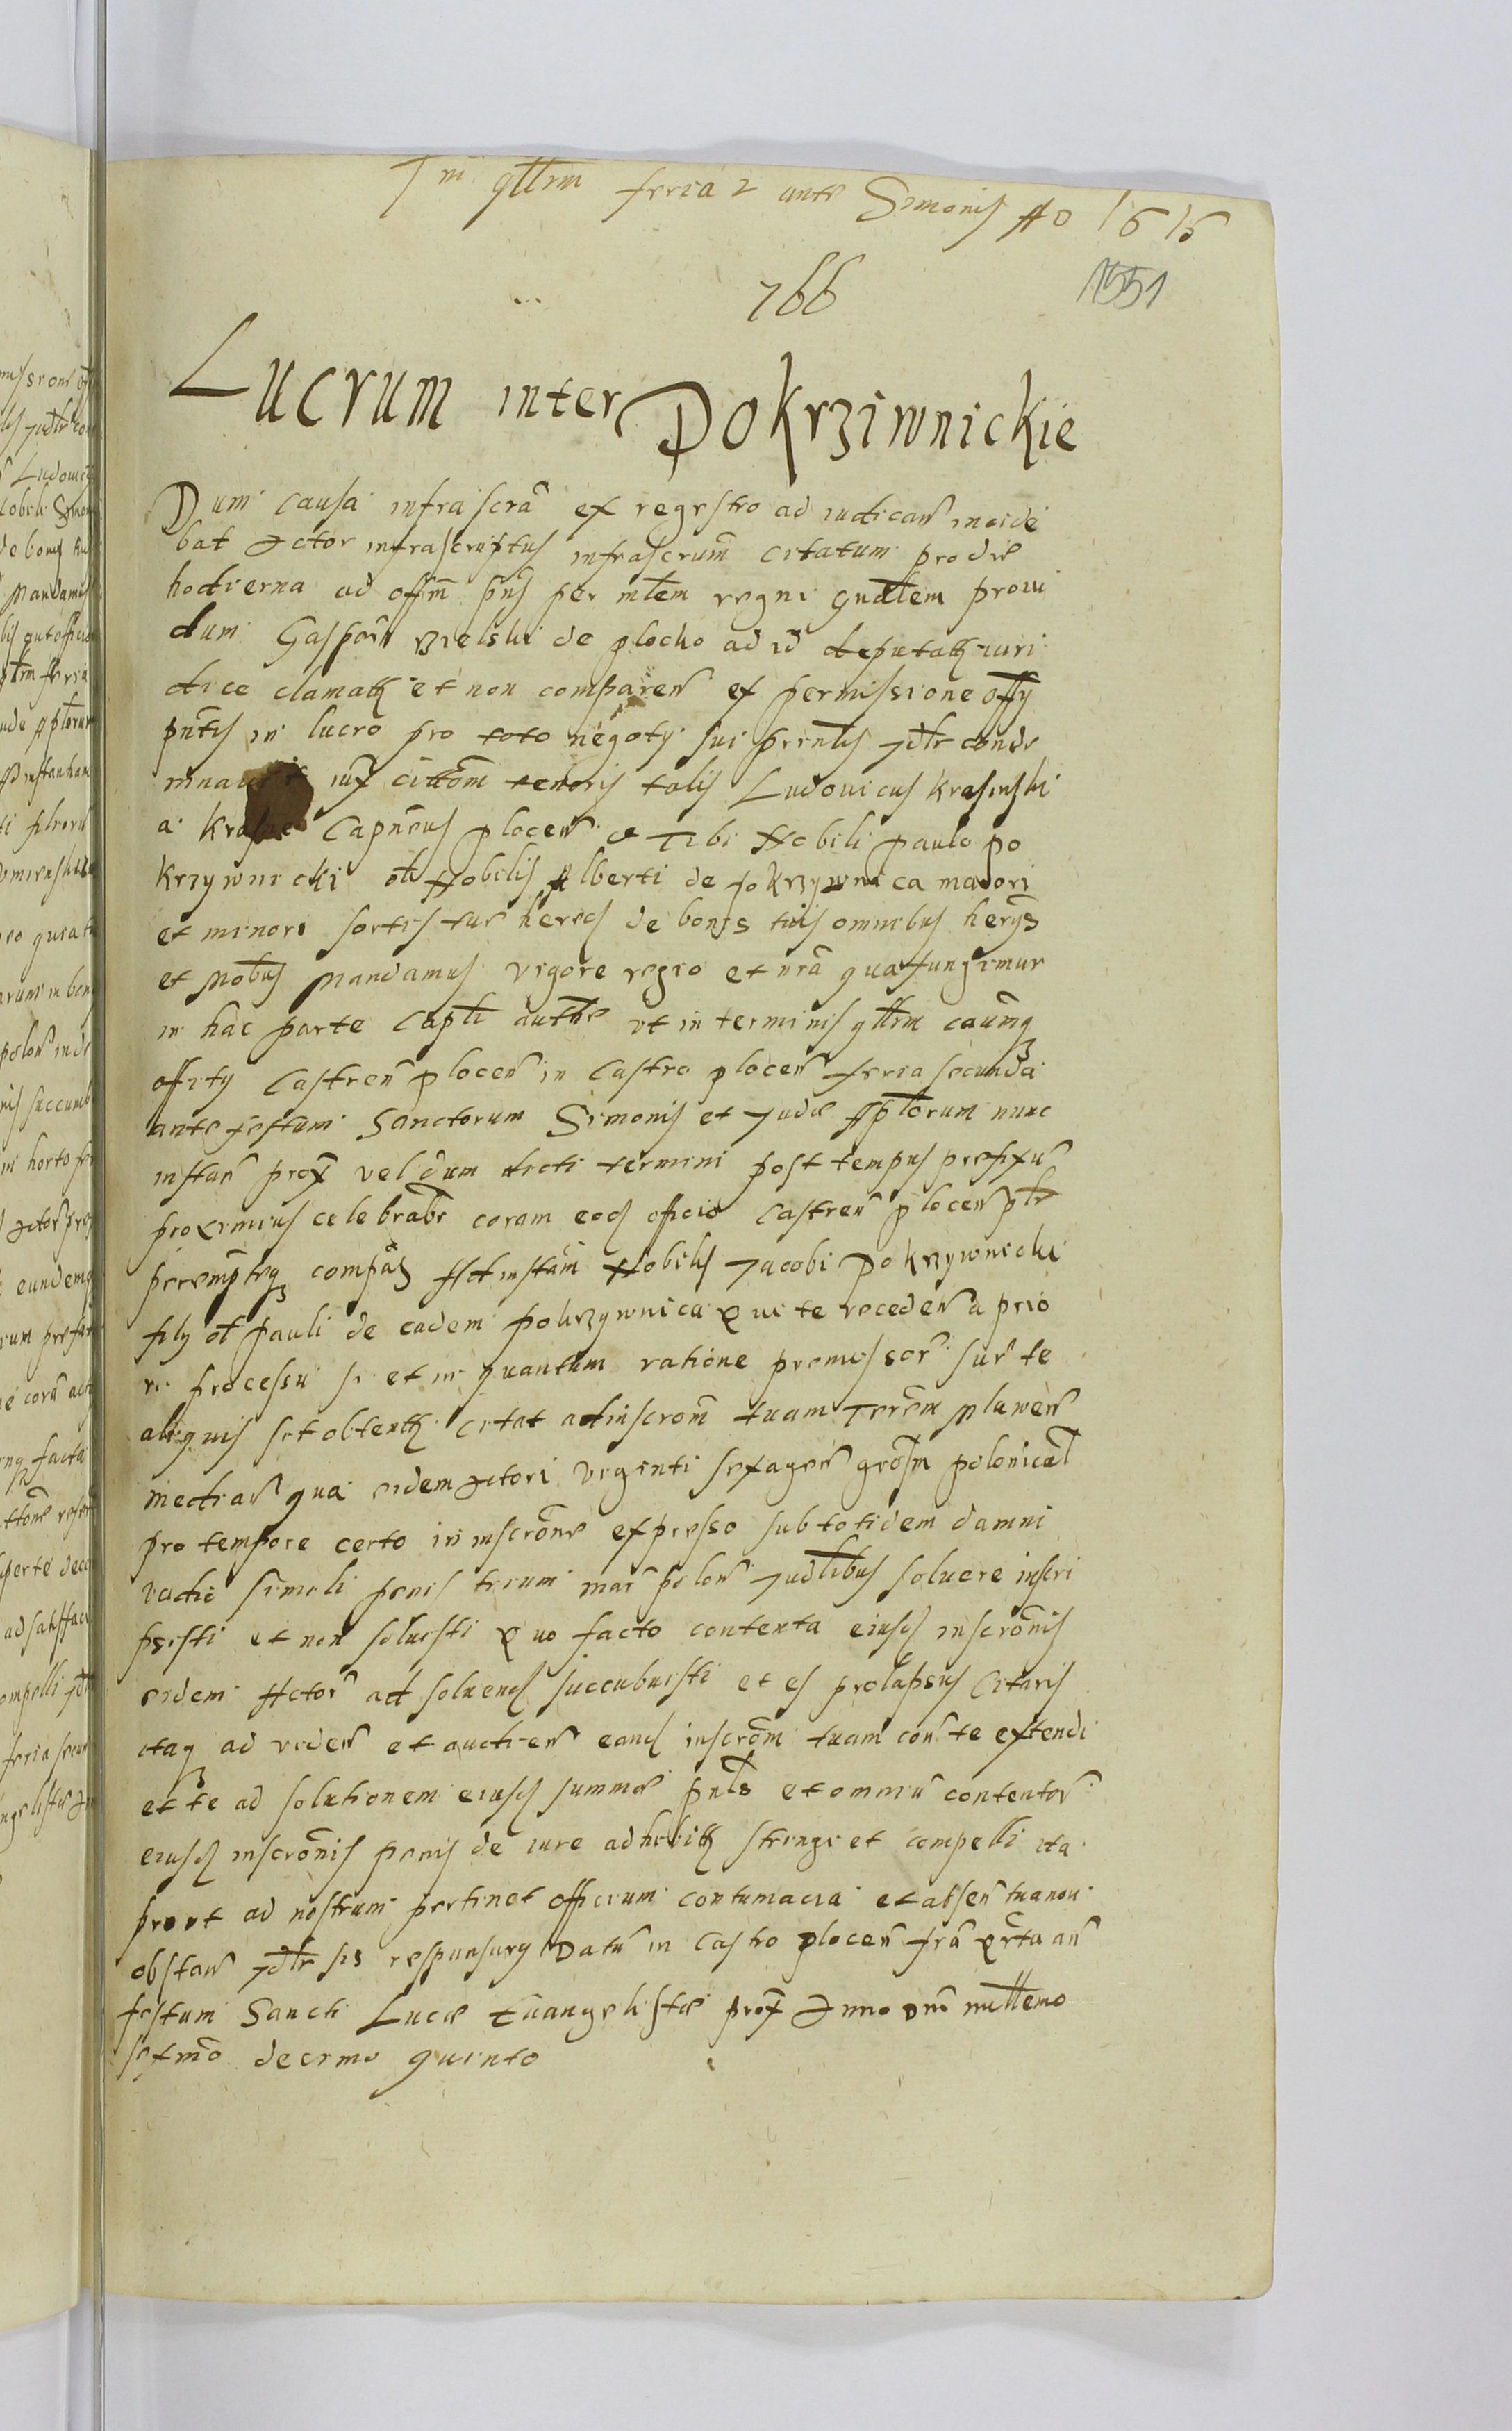 In qttrm feria 2 ante Simonis Ao 1615
766
1551
Lucrum inter Pokrziwnickie
Dum causa infrascra ex regestro ad iudican incide
bat Actor infrascriptus infrascrum citatum pro die
hodierna ad offm pns per mlem regni gnalem provi
dum Gaspar Bielski de plocko ad id deputatq iuri
dice clamatq et non comparen ex permissione offy
pntis in lucro pro toto negoty sui prentis Jdlr conde
iux cittom tenoris talis Ludovicus Krasinski
a Capneus plocen Tibi Nobili paulo po
krzywnicki oli Nobilis Alberti de pokrzywnica maiori
et minori sortis tuae hered de bonis tuis omnibus herys
et Mobus Mandamus vigore regio et nra qua fungimur
in hac parte Captli authe ut in terminis qttrm caumq
offity Castren plocen in Castro plocen feria secunda
ante festum Sanctorum Simonis et Judae ApLorum nunc
instan prox vel dum dicti termini post tempus prefixum
proximius celebrabr coram eod officio Castren plocen plr
peremptieq compas Ad instam Nobilis Jacobi Pokrzywnicki
fily ol Pauli de eadem pokrzywnica Qui te receden a prio
ri processu si et in quantum ratione premissor sur te
aliquis sit obtentq citat ad inscrom tuam Terem plawen
mediam qua eidem Actori viginti sexagen grosm polonical
pro tempore certo in inscrone expresso sub totidem damni
vadio simili penis trium mar polon Judlibus solvere inscri
psisti et non solvisti Quo facto contenta eiusd inscronis
eidem Actor ad solvend succubuisti et es prolapsus Citaris
itaq ad viden et audien eand inscrom tuam con te extendi
et te ad solutionem eiusd summae pnls et omniu contentor
eiusd inscronis penis de iure adhibitq stringi et compelli ita
prout ad nostrum pertinet officium contumacia et absen tua non
obstan Jdlr sis responsurq Datu in Castro plocen fra Qrta an
festum Sancti Lucae Evangelistae prox Anno Dni millemo
sexmo decimo quinto